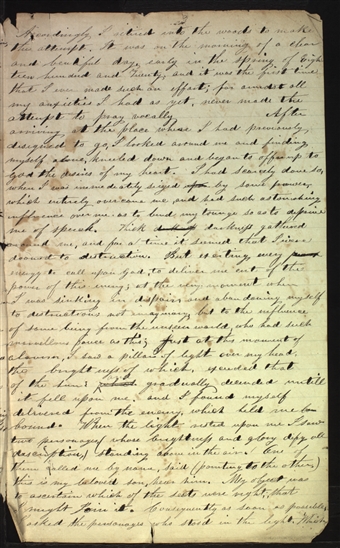 Accordingly, I retired into the woods to make
the attempt. It was on the morning of a clear
and beutiful day, early in the spring of Eigh
teen hundred and twenty, and it was the first time
that I ever made such an effort; for amidst all
my anxieties I had as yet, never made the
attempt to pray vocally After
arriving, at the place where I had previously,
designed to go, I looked around me and finding
myself alone, kneeled down and began to offer up to
God the desires of my heart. I had scarcely done so,
when I was immediately seized by some power,
which entirely overcame me, and had such astonishing
influence over me as to bind my tounge so as to
me of speech. Thick darkness gathered
around me, and for a time it seemed that I was
doomed to destruction. But exerting, every
energy to call upon God, to deliver me out of the
power of this enemy; at the very moment when
I was sinking in dispair, and abandoning myself
to destruction, not imaginary, but to the influence
of some being from the unseen world, who had such
marvellous power as this; Just at this moment of
alarm, I saw a pillar of light over my head,
the brightness of which, exceeded that
of the sun; gradually decended untill
it fell upon me, and I found myself
delivered from the enemy, which held me
bound. When the light, rested upon me I saw
two personages whose brightness and glory defy all
description, standing above in the air. One of
them called me by name, said (pointing to the other)
this is my beloved son, hear him. My object was
to ascertain which of the sects were right, that
I might Join it. Consequently as soon, as possible,
I asked the personages who stood in the light. Which